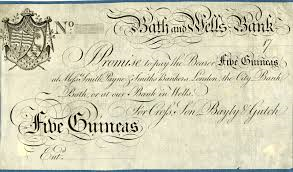 No.
Bath and Wells Bank
17
I Promise to pay the Bearer Five Guineas
at Messrs. Smith Payne & Smiths Bankers, London, the City Bank
Bath, or at our Bank in Wells.
For Cross, Son, Bayly & Gutch
Five Guineas
Ent.